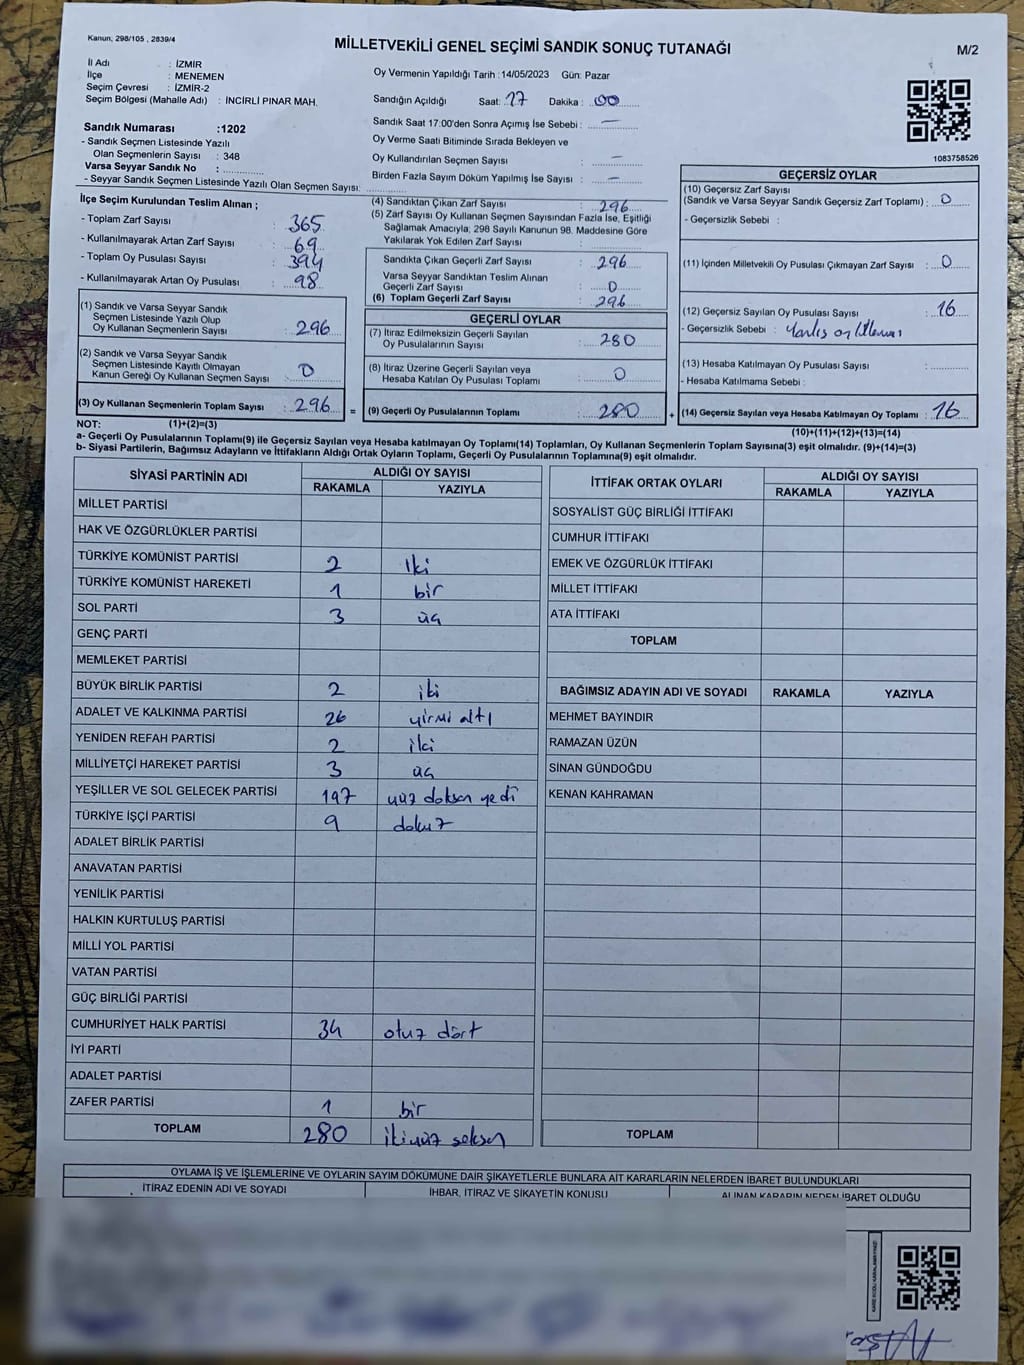 Kanun; 298/105 , 2839/4
MİLLETVEKİLİ GENEL SEÇİMİ SANDIK SONUÇ TUTANAĞI
M/2
İl Adı : İZMİR
İlçe : MENEMEN
Seçim Çevresi : İZMİR-2
Seçim Bölgesi (Mahalle Adı) : İNCİRLİ PINAR MAH.
Oy Vermenin Yapıldığı Tarih : 14/05/2023 Gün: Pazar
Sandığın Açıldığı Saat: 17 Dakika : 00
Sandık Saat 17:00'den Sonra Açımış İse Sebebi : —
Oy Verme Saati Bitiminde Sırada Bekleyen ve
Oy Kullandırılan Seçmen Sayısı : —
Birden Fazla Sayım Döküm Yapılmış İse Sayısı : —
Sandık Numarası : 1202
- Sandık Seçmen Listesinde Yazılı
Olan Seçmenlerin Sayısı : 348
Varsa Seyyar Sandık No :
- Seyyar Sandık Seçmen Listesinde Yazılı Olan Seçmen Sayısı:
1083758526
İlçe Seçim Kurulundan Teslim Alınan ;
- Toplam Zarf Sayısı : 365
- Kullanılmayarak Artan Zarf Sayısı : 69
- Toplam Oy Pusulası Sayısı : 394
- Kullanılmayarak Artan Oy Pusulası : 98
(1) Sandık ve Varsa Seyyar Sandık
Seçmen Listesinde Yazılı Olup
Oy Kullanan Seçmenlerin Sayısı : 296
(2) Sandık ve Varsa Seyyar Sandık
Seçmen Listesinde Kayıtlı Olmayan
Kanun Gereği Oy Kullanan Seçmen Sayısı : 0
(3) Oy Kullanan Seçmenlerin Toplam Sayısı : 296
(4) Sandıktan Çıkan Zarf Sayısı : 296
(5) Zarf Sayısı Oy Kullanan Seçmen Sayısından Fazla İse, Eşitliği
Sağlamak Amacıyla; 298 Sayılı Kanunun 98. Maddesine Göre
Yakılarak Yok Edilen Zarf Sayısı :
Sandıkta Çıkan Geçerli Zarf Sayısı : 296
Varsa Seyyar Sandıktan Teslim Alınan
Geçerli Zarf Sayısı : 0
(6) Toplam Geçerli Zarf Sayısı : 296
GEÇERLİ OYLAR
(7) İtiraz Edilmeksizin Geçerli Sayılan
Oy Pusulalarının Sayısı : 280
(8) İtiraz Üzerine Geçerli Sayılan veya
Hesaba Katılan Oy Pusulası Toplamı : 0
= (9) Geçerli Oy Pusulalarının Toplamı : 280
GEÇERSİZ OYLAR
(10) Geçersiz Zarf Sayısı
(Sandık ve Varsa Seyyar Sandık Geçersiz Zarf Toplamı) : 0
- Geçersizlik Sebebi :
(11) İçinden Milletvekili Oy Pusulası Çıkmayan Zarf Sayısı : 0
(12) Geçersiz Sayılan Oy Pusulası Sayısı : 16
- Geçersizlik Sebebi : Yanlış oy
(13) Hesaba Katılmayan Oy Pusulası Sayısı :
- Hesaba Katılmama Sebebi :
+ (14) Geçersiz Sayılan veya Hesaba Katılmayan Oy Toplamı : 16
NOT: (1)+(2)=(3)
(10)+(11)+(12)+(13)=(14)
a- Geçerli Oy Pusulalarının Toplamı(9) ile Geçersiz Sayılan veya Hesaba katılmayan Oy Toplamı(14) Toplamları, Oy Kullanan Seçmenlerin Toplam Sayısına(3) eşit olmalıdır. (9)+(14)=(3)
b- Siyasi Partilerin, Bağımsız Adayların ve İttifakların Aldığı Ortak Oyların Toplamı, Geçerli Oy Pusulalarının Toplamına(9) eşit olmalıdır.
SİYASİ PARTİNİN ADI ALDIĞI OY SAYISI
RAKAMLA YAZIYLA
MİLLET PARTİSİ
HAK VE ÖZGÜRLÜKLER PARTİSİ
TÜRKİYE KOMÜNİST PARTİSİ 2 iki
TÜRKİYE KOMÜNİST HAREKETİ 1 bir
SOL PARTİ 3 üç
GENÇ PARTİ
MEMLEKET PARTİSİ
BÜYÜK BİRLİK PARTİSİ 2 iki
ADALET VE KALKINMA PARTİSİ 26 yirmi altı
YENİDEN REFAH PARTİSİ 2 iki
MİLLİYETÇİ HAREKET PARTİSİ 3 üç
YEŞİLLER VE SOL GELECEK PARTİSİ 197 yüz doksan yedi
TÜRKİYE İŞÇİ PARTİSİ 9 dokuz
ADALET BİRLİK PARTİSİ
ANAVATAN PARTİSİ
YENİLİK PARTİSİ
HALKIN KURTULUŞ PARTİSİ
MİLLİ YOL PARTİSİ
VATAN PARTİSİ
GÜÇ BİRLİĞİ PARTİSİ
CUMHURİYET HALK PARTİSİ 34 otuz dört
İYİ PARTİ
ADALET PARTİSİ
ZAFER PARTİSİ 1 bir
TOPLAM 280 ikiyüz seksen
İTTİFAK ORTAK OYLARI ALDIĞI OY SAYISI
RAKAMLA YAZIYLA
SOSYALİST GÜÇ BİRLİĞİ İTTİFAKI
CUMHUR İTTİFAKI
EMEK VE ÖZGÜRLÜK İTTİFAKI
MİLLET İTTİFAKI
ATA İTTİFAKI
TOPLAM
BAĞIMSIZ ADAYIN ADI VE SOYADI RAKAMLA YAZIYLA
MEHMET BAYINDIR
RAMAZAN ÜZÜN
SİNAN GÜNDOĞDU
KENAN KAHRAMAN
TOPLAM
OYLAMA İŞ VE İŞLEMLERİNE VE OYLARIN SAYIM DÖKÜMÜNE DAİR ŞİKAYETLERLE BUNLARA AİT KARARLARIN NELERDEN İBARET BULUNDUKLARI
İTİRAZ EDENİN ADI VE SOYADI İHBAR, İTİRAZ VE ŞİKAYETİN KONUSU ALINAN KARARIN NEDEN İBARET OLDUĞU